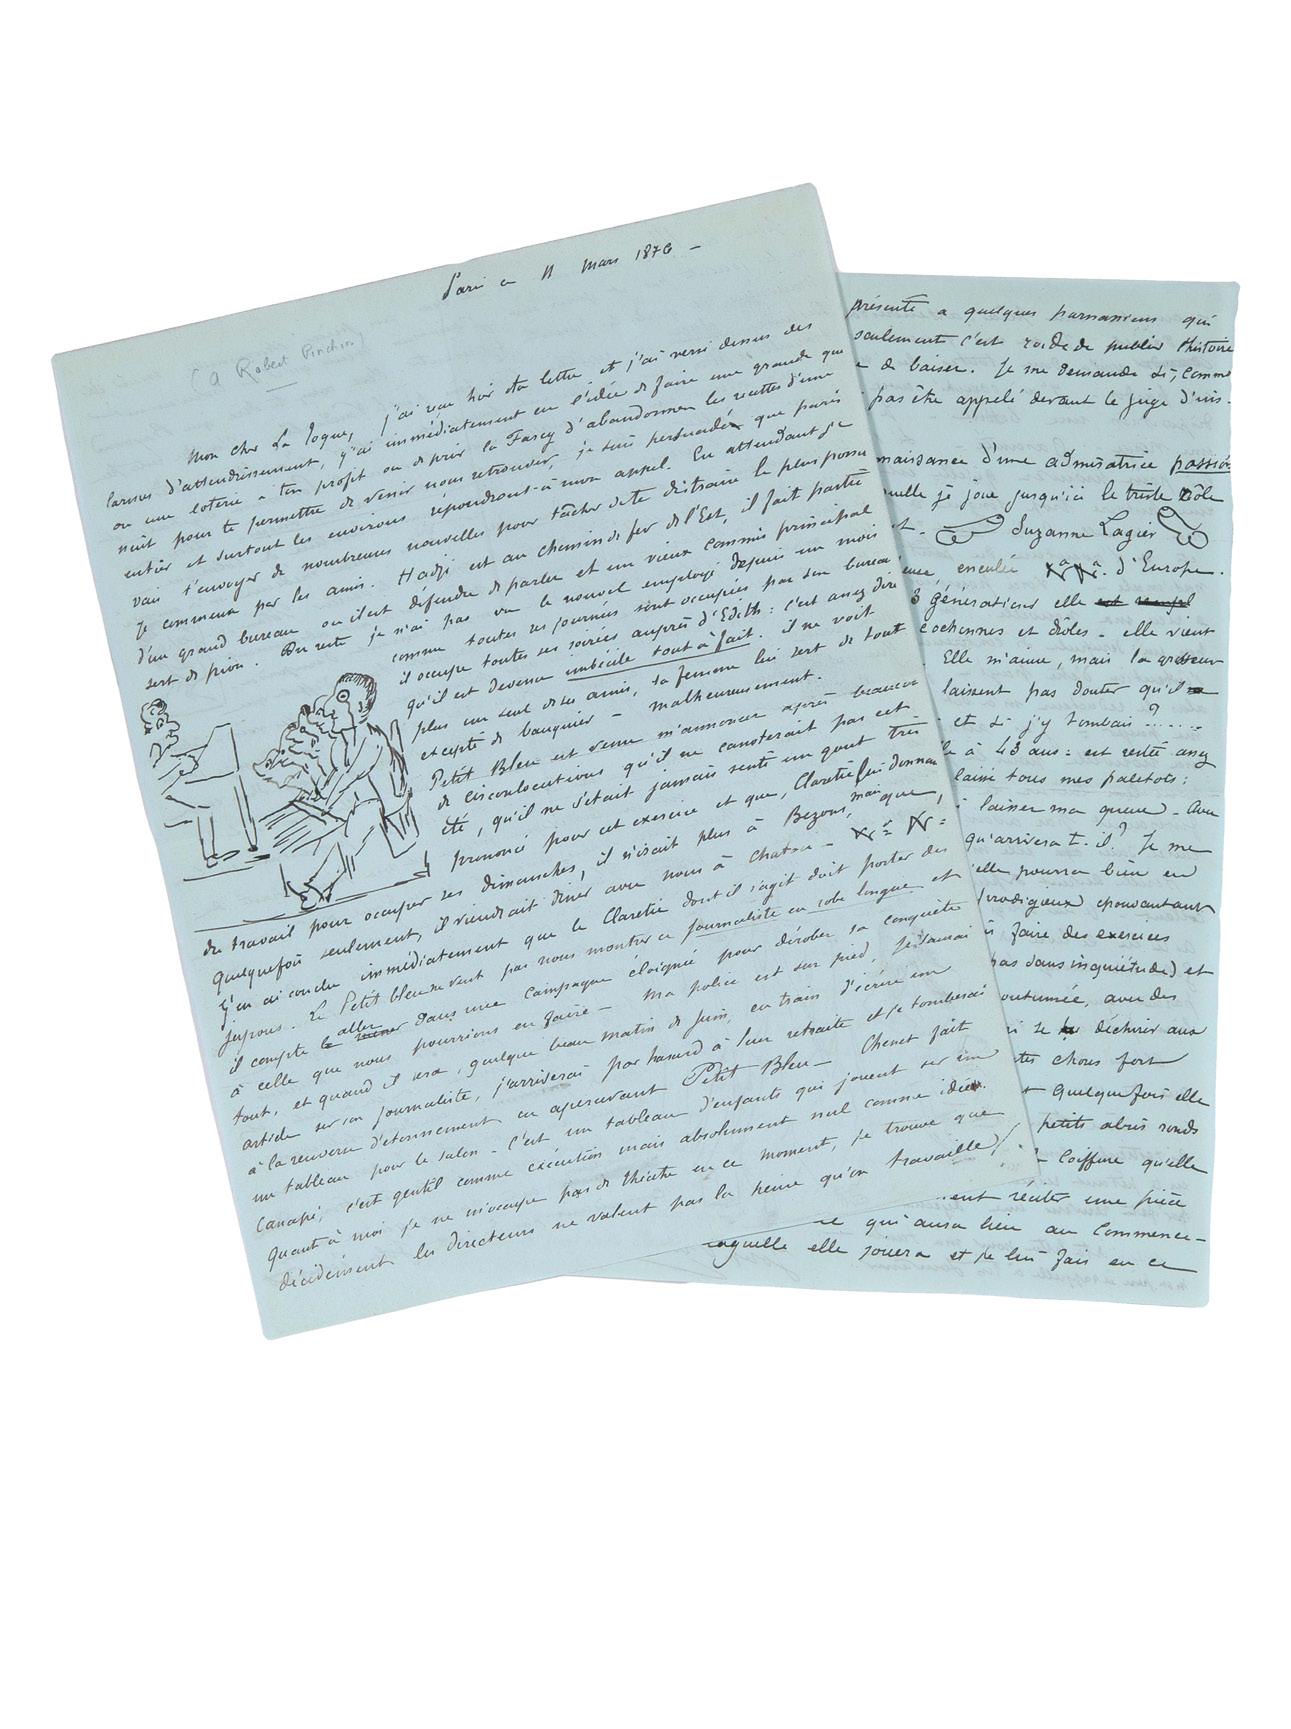 Paris ce 11 Mars 1876 –
(A Robert Pinchon)
Mon cher La Toque, j'ai reçu hier ta lettre et j'ai versé dessus des
larmes d'attendrissement, j'ai immédiatement eu l'idée de faire une grande quê
ou une loterie à ton profit ou de prier la Farcy d'abandonner les recettes d'une
nuit pour te permettre de venir nous retrouver, je suis persuadé que Paris
entier et surtout les environs répondront à mon appel. En attendant je
vais t'envoyer de nombreuses nouvelles pour tâcher de te distraire le plus possi
Je commence par les amis. Hadji est au chemin de fer de l'Est, il fait partie
d'un grand bureau où il est défendu de parler et un vieux commis principal
sert de pion. Du reste je n'ai pas vu le nouvel employé depuis un mois
comme toutes ses journées sont occupées par son bureau
il occupe toutes ses soirées auprès d'Edith : c'est assez dire
qu'il est devenu imbécile tout à fait. il ne voit
plus un seul de ses amis, sa femme lui sert de tout
excepté de banquier – malheureusement.
Petit Bleu est venu m'annoncer après beaucou
de circonlocutions qu'il ne canoterait pas cet
été, qu'il ne s'était jamais senti un gout très
prononcé pour cet exercice et que, Claretie lui donnan
du travail pour occuper ses dimanches, il n'irait plus à Bezons, mais que,
Quelquefois seulement, il viendrait diner avec nous à Chatou –
J'en ai conclu immédiatement que le Claretie dont il s'agit doit porter des
jupons. Le Petit bleu ne veut pas nous montrer ce journaliste en robe longue et
il compte aller dans une campagne éloignée pour dérober sa conquête
à celle que nous pourrions en faire – Ma police est sur pied, je saurai
tout, et quand il sera, quelque beau matin de Juin, en train d'écrire un
article sur son journaliste, j'arriverai par hasard à leur retraite et je tomberai
à la renverse d'étonnement en apercevant Petit Bleu – Chenet fait
un tableau pour le salon – C'est un tableau d'enfants qui jouent sur un
Canapé, c'est gentil comme exécution mais absolument nul comme idée.
Quant à moi je ne m'occupe pas de théâtre en ce moment, je trouve que
décidément les directeurs ne valent pas la peine qu'on travaille
présenté a quelques parnassiens qui
seulement c'est roide de publier l'histoire
de baiser. Je me demande si, comme
pas être appelé devant le Juge d'ins-
naissance d'une admiratrice passion
quelle je joue jusqu'ici le triste rôle
Suzanne Lagier
enculée d'Europe.
3 générations elle
cochonnes et drôles – elle vient
Elle m'aime, mais la grosseur
laissent pas douter qu'il
et si j'y tombais ?.....
à 43 ans : est resté assez
laissé tous mes paletots :
laisser ma queue – Avec
qu'arrivera t-il ? Je me
elle pourra bien en
prodigieux epouvantant
à faire des exercices
pas sans inquiétude) et
outumée, avec des
se déchirer aux
choses fort
Quelquefois elle
petits abris ronds
Coiffure qu'elle
réciter une pièce
qui aura lieu au Commence-
laquelle elle jouera et je lui fais en ce